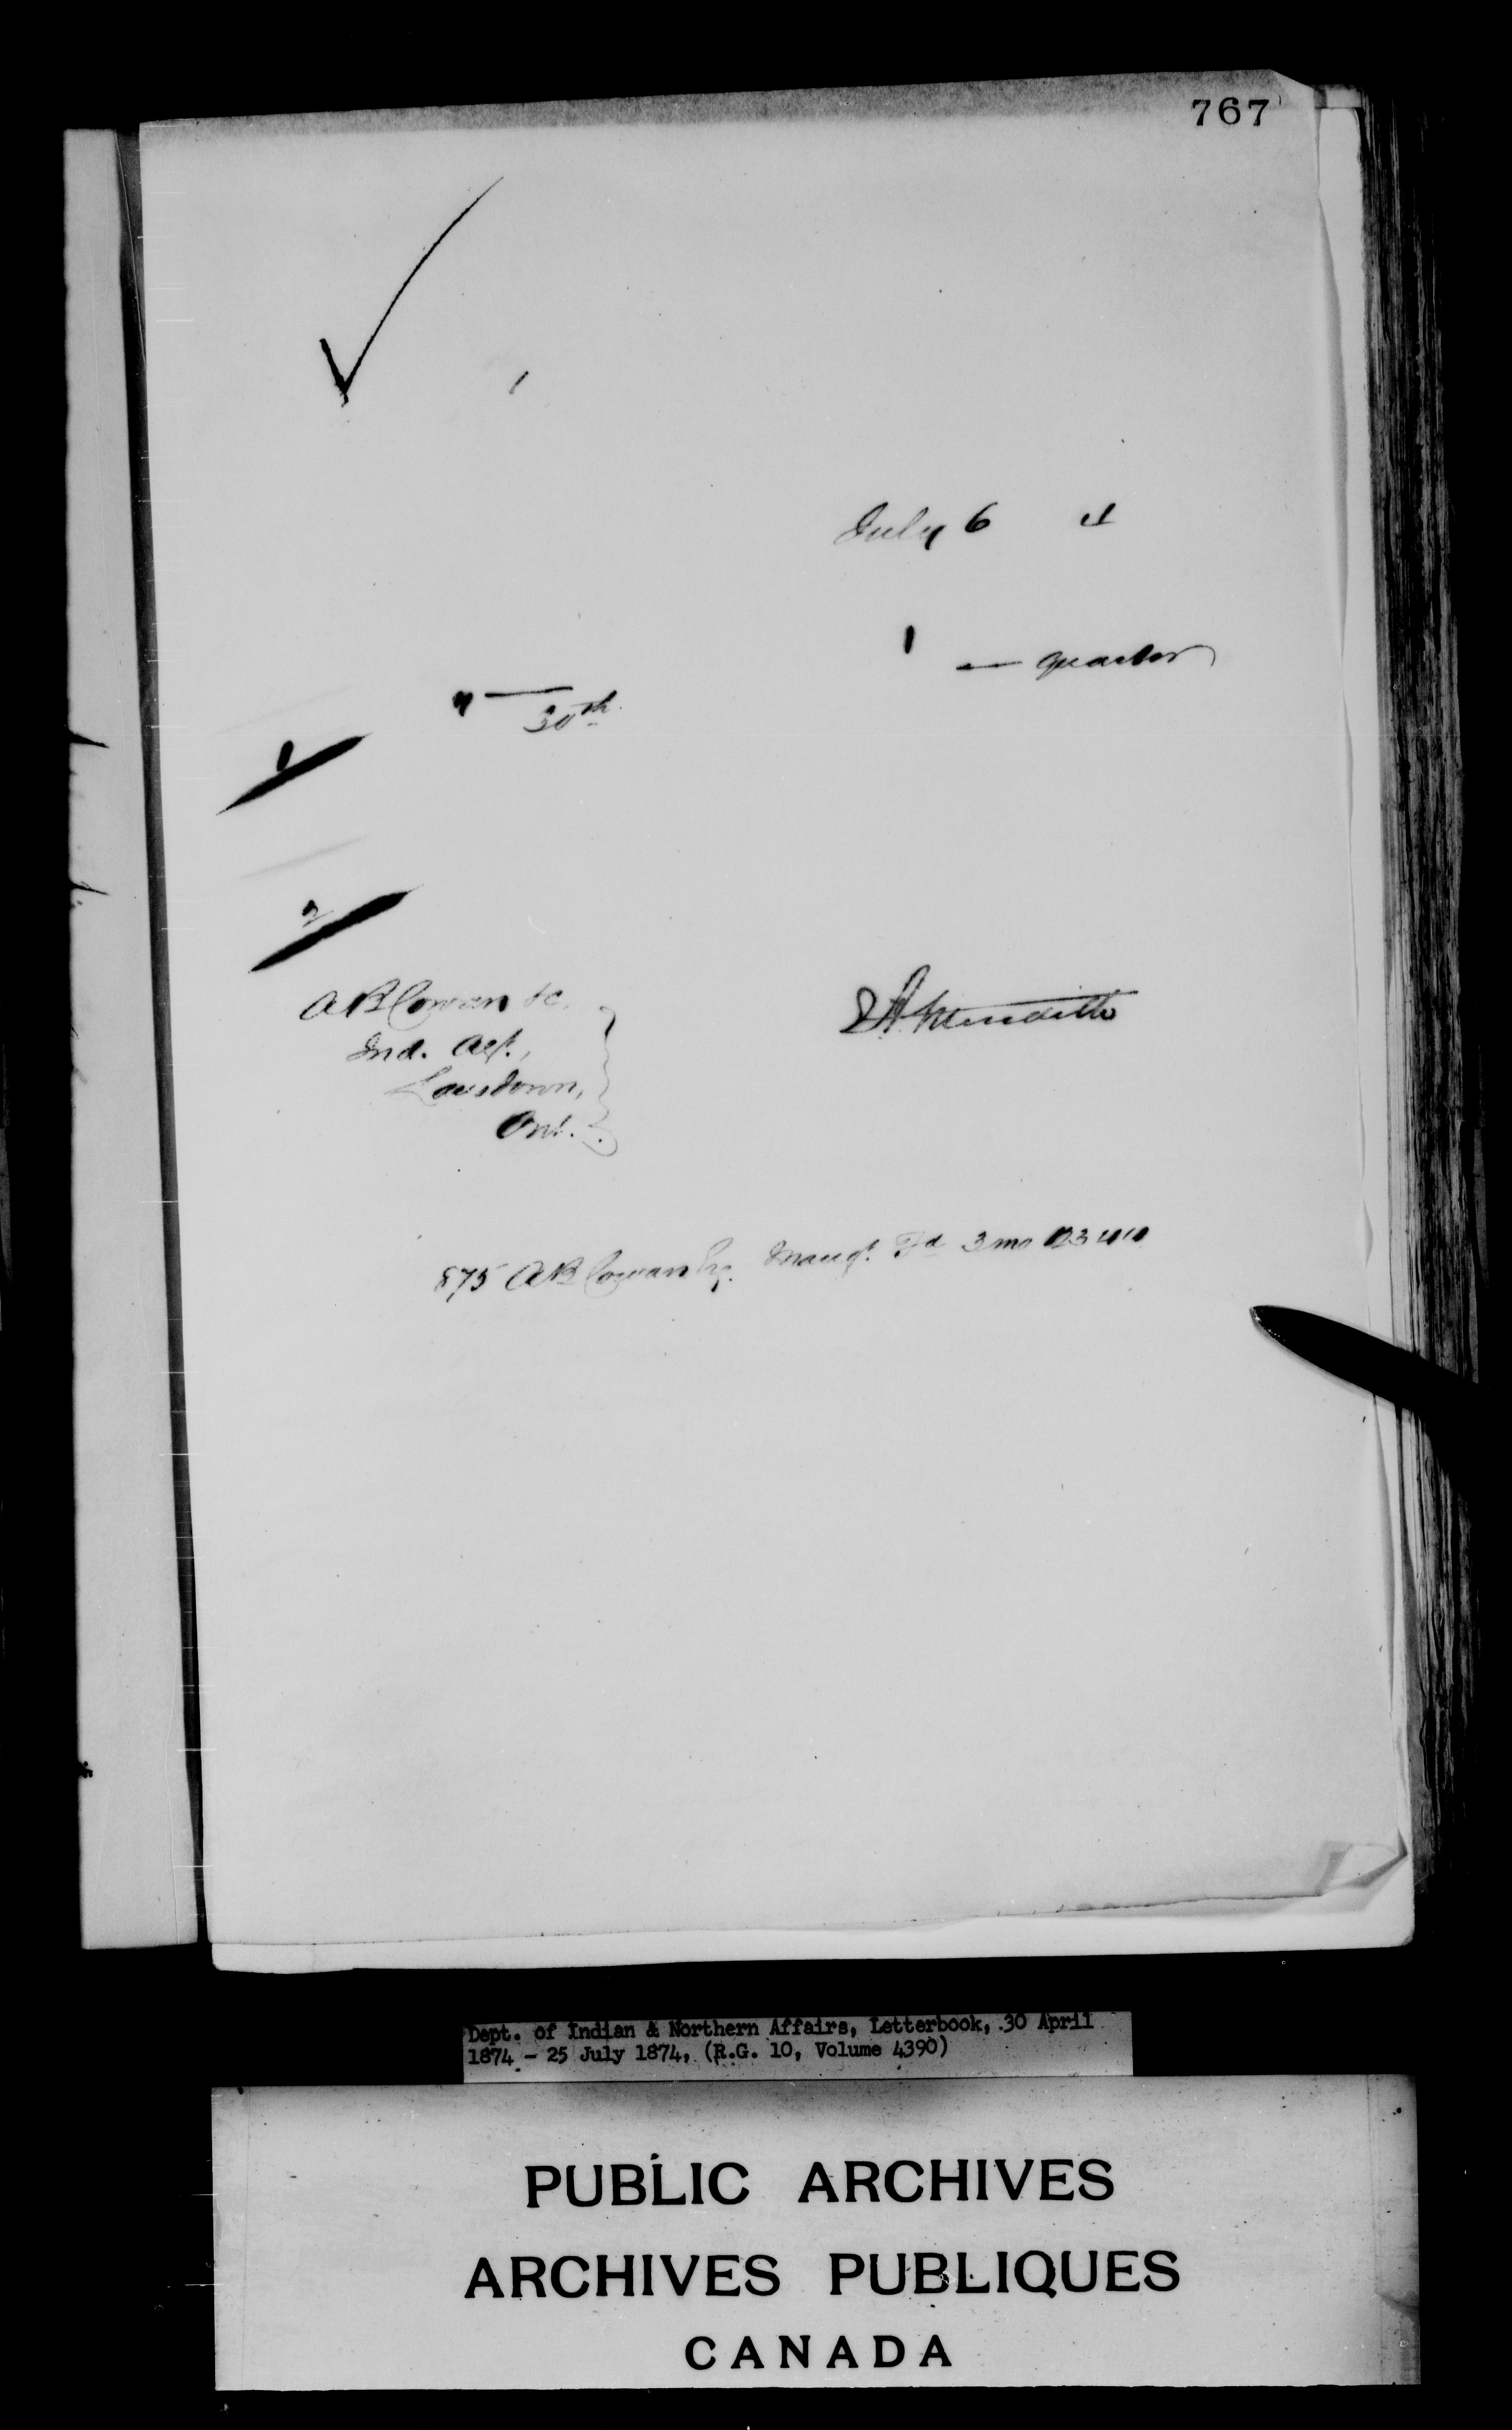 767
July 6 4
1 — quarter
30th
1
2
A B Cowan
Ind. Agt.,
Lansdown,
Ont.
E A Meredith
875 A B Cowan Esq. Mang. Fd 3 mo
Dept. of Indian & Northern Affairs, Letterbook, 30 April
1874 - 25 July 1874, (R.G. 10, Volume 4390)
PUBLIC ARCHIVES
ARCHIVES PUBLIQUES
CANADA